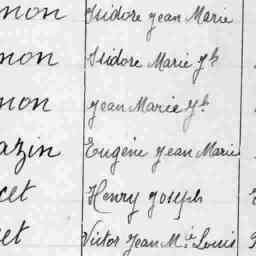 mon Isidore Jean Marie
mon Isidore Marie Jh
mon Jean Marie Jh
azin Eugène Jean Marie
cet Henry Joseph
et Victor Jean Mie Louis